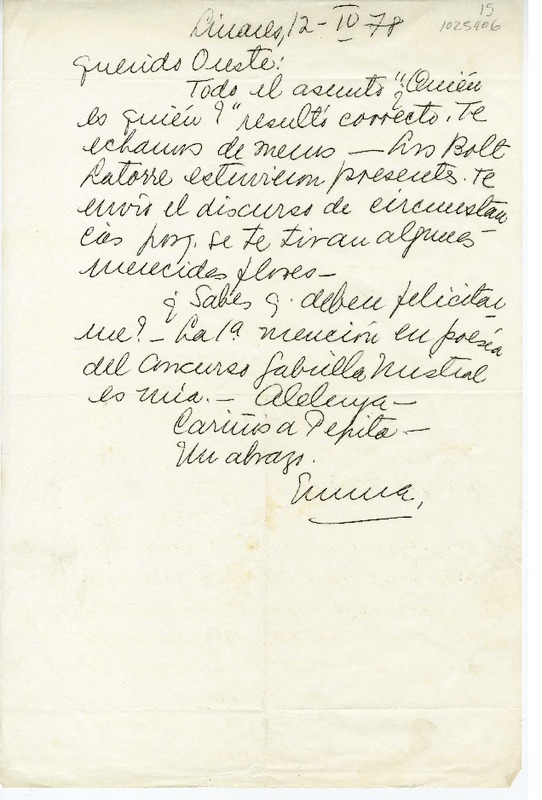 15
Linares, 12-IV 78
Querido Oreste:
Todo el asunto "¿Quién
es quién?" resultó correcto. Te
echamos de menos — Los Bolt
Latorre estuvieron presentes. Te
envío el discurso de circunstan
cias porq. se te tiran algunas
merecidas flores —
¿Sabes q. deben felicitar
me? — La 1ª mención en poesía
del Concurso Gabriela Mistral
es mía. — Aleluya —
Cariños a Pepita —
Un abrazo.
Emma,